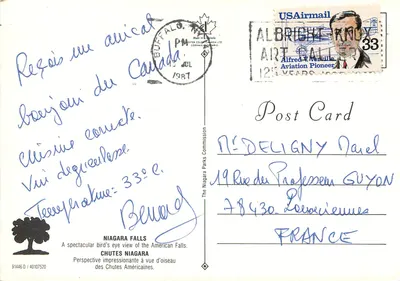 Reçois un amical
bonjour du Canada.
Cuisine correcte.
Vin dégueulasse.
Température = 33°C.
Benard
NIAGARA FALLS
A spectacular bird's eye view of the American Falls.
CHUTES NIAGARA
Perspective impressionante à vue d'oiseau
des Chutes Américaines.
The Niagara Parks Commission
BUFFALO, N.Y.
PM
JUL
1987
ALBRIGHT-KNOX
ART GALLERY
125 YEARS
USAirmail
33
Alfred V. Verville
Aviation Pioneer
Post Card
Mr DELIGNY Marcel
19 Rue du Professeur GUYON
78430 - Louveciennes
FRANCE